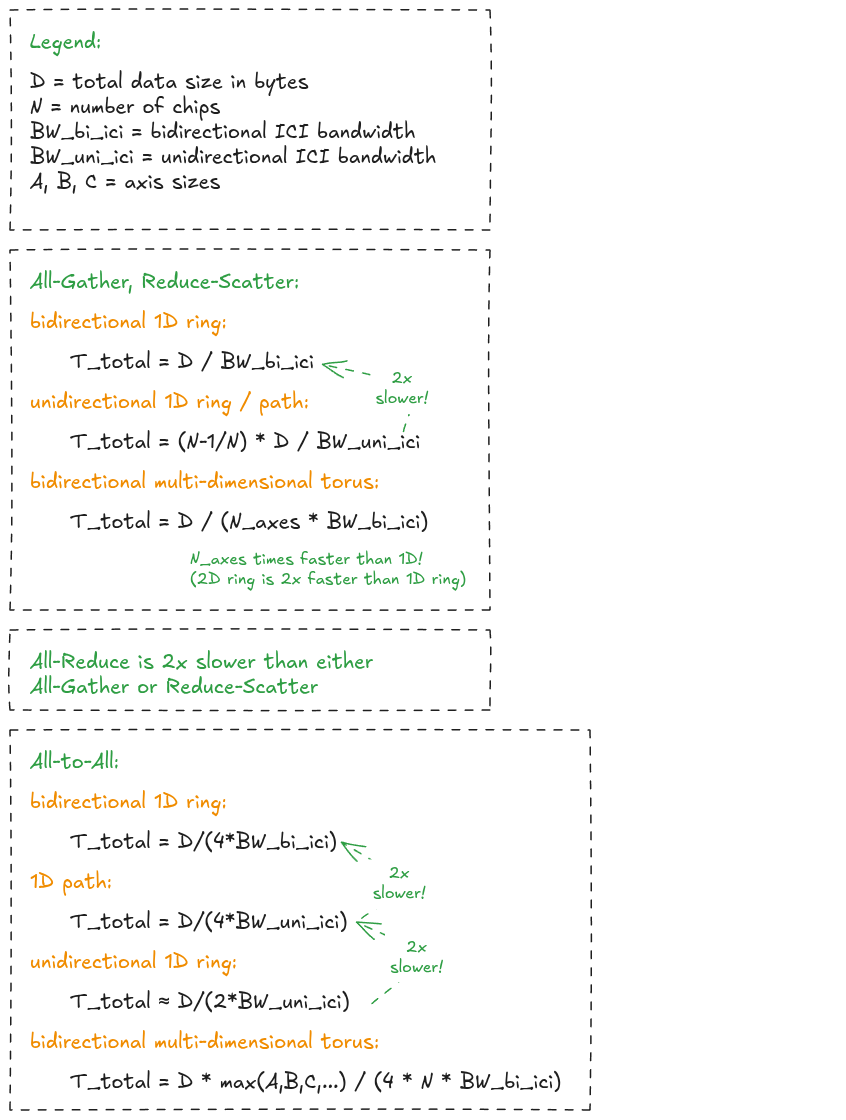 Legend:
D = total data size in bytes
N = number of chips
BW_bi_ici = bidirectional ICI bandwidth
BW_uni_ici = unidirectional ICI bandwidth
A, B, C = axis sizes
All-Gather, Reduce-Scatter:
bidirectional 1D ring:
T_total = D / BW_bi_ici
2x
slower!
unidirectional 1D ring / path:
T_total = (N-1/N) * D / BW_uni_ici
bidirectional multi-dimensional torus:
T_total = D / (N_axes * BW_bi_ici)
N_axes times faster than 1D!
(2D ring is 2x faster than 1D ring)
All-Reduce is 2x slower than either
All-Gather or Reduce-Scatter
All-to-All:
bidirectional 1D ring:
T_total = D/(4*BW_bi_ici)
2x
slower!
1D path:
T_total = D/(4*BW_uni_ici)
2x
slower!
unidirectional 1D ring:
T_total ≈ D/(2*BW_uni_ici)
bidirectional multi-dimensional torus:
T_total = D * max(A,B,C,...) / (4 * N * BW_bi_ici)